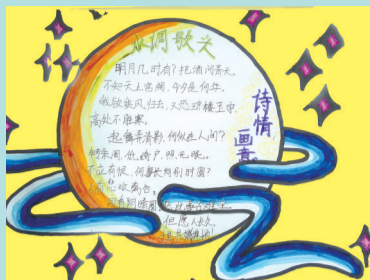 水调歌头
明月几时有?把酒问青天。
不知天上宫阙,今夕是何年。
我欲乘风归去,又恐琼楼玉宇,
高处不胜寒。
起舞弄清影,何似在人间?
转朱阁,低绮户,照无眠。
不应有恨,何事长向别时圆?
人有悲欢离合,
月有阴晴圆
此事古难全。
但愿人长久,
诗情
画意